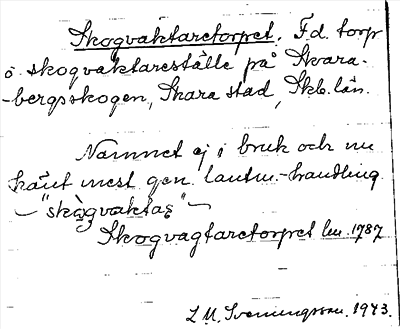 Skogvaktaretorpet. F.d. torp
o. skogvaktareställe på Skara-
-bergsskogen, Skara stad, Skb. län.
Namnet ej i bruk och nu
känt mest gen. lantm.-handling
"skògvaktas"
Skogvagtaretorpet lm. 1787
L M. Sveningsson. 1943.